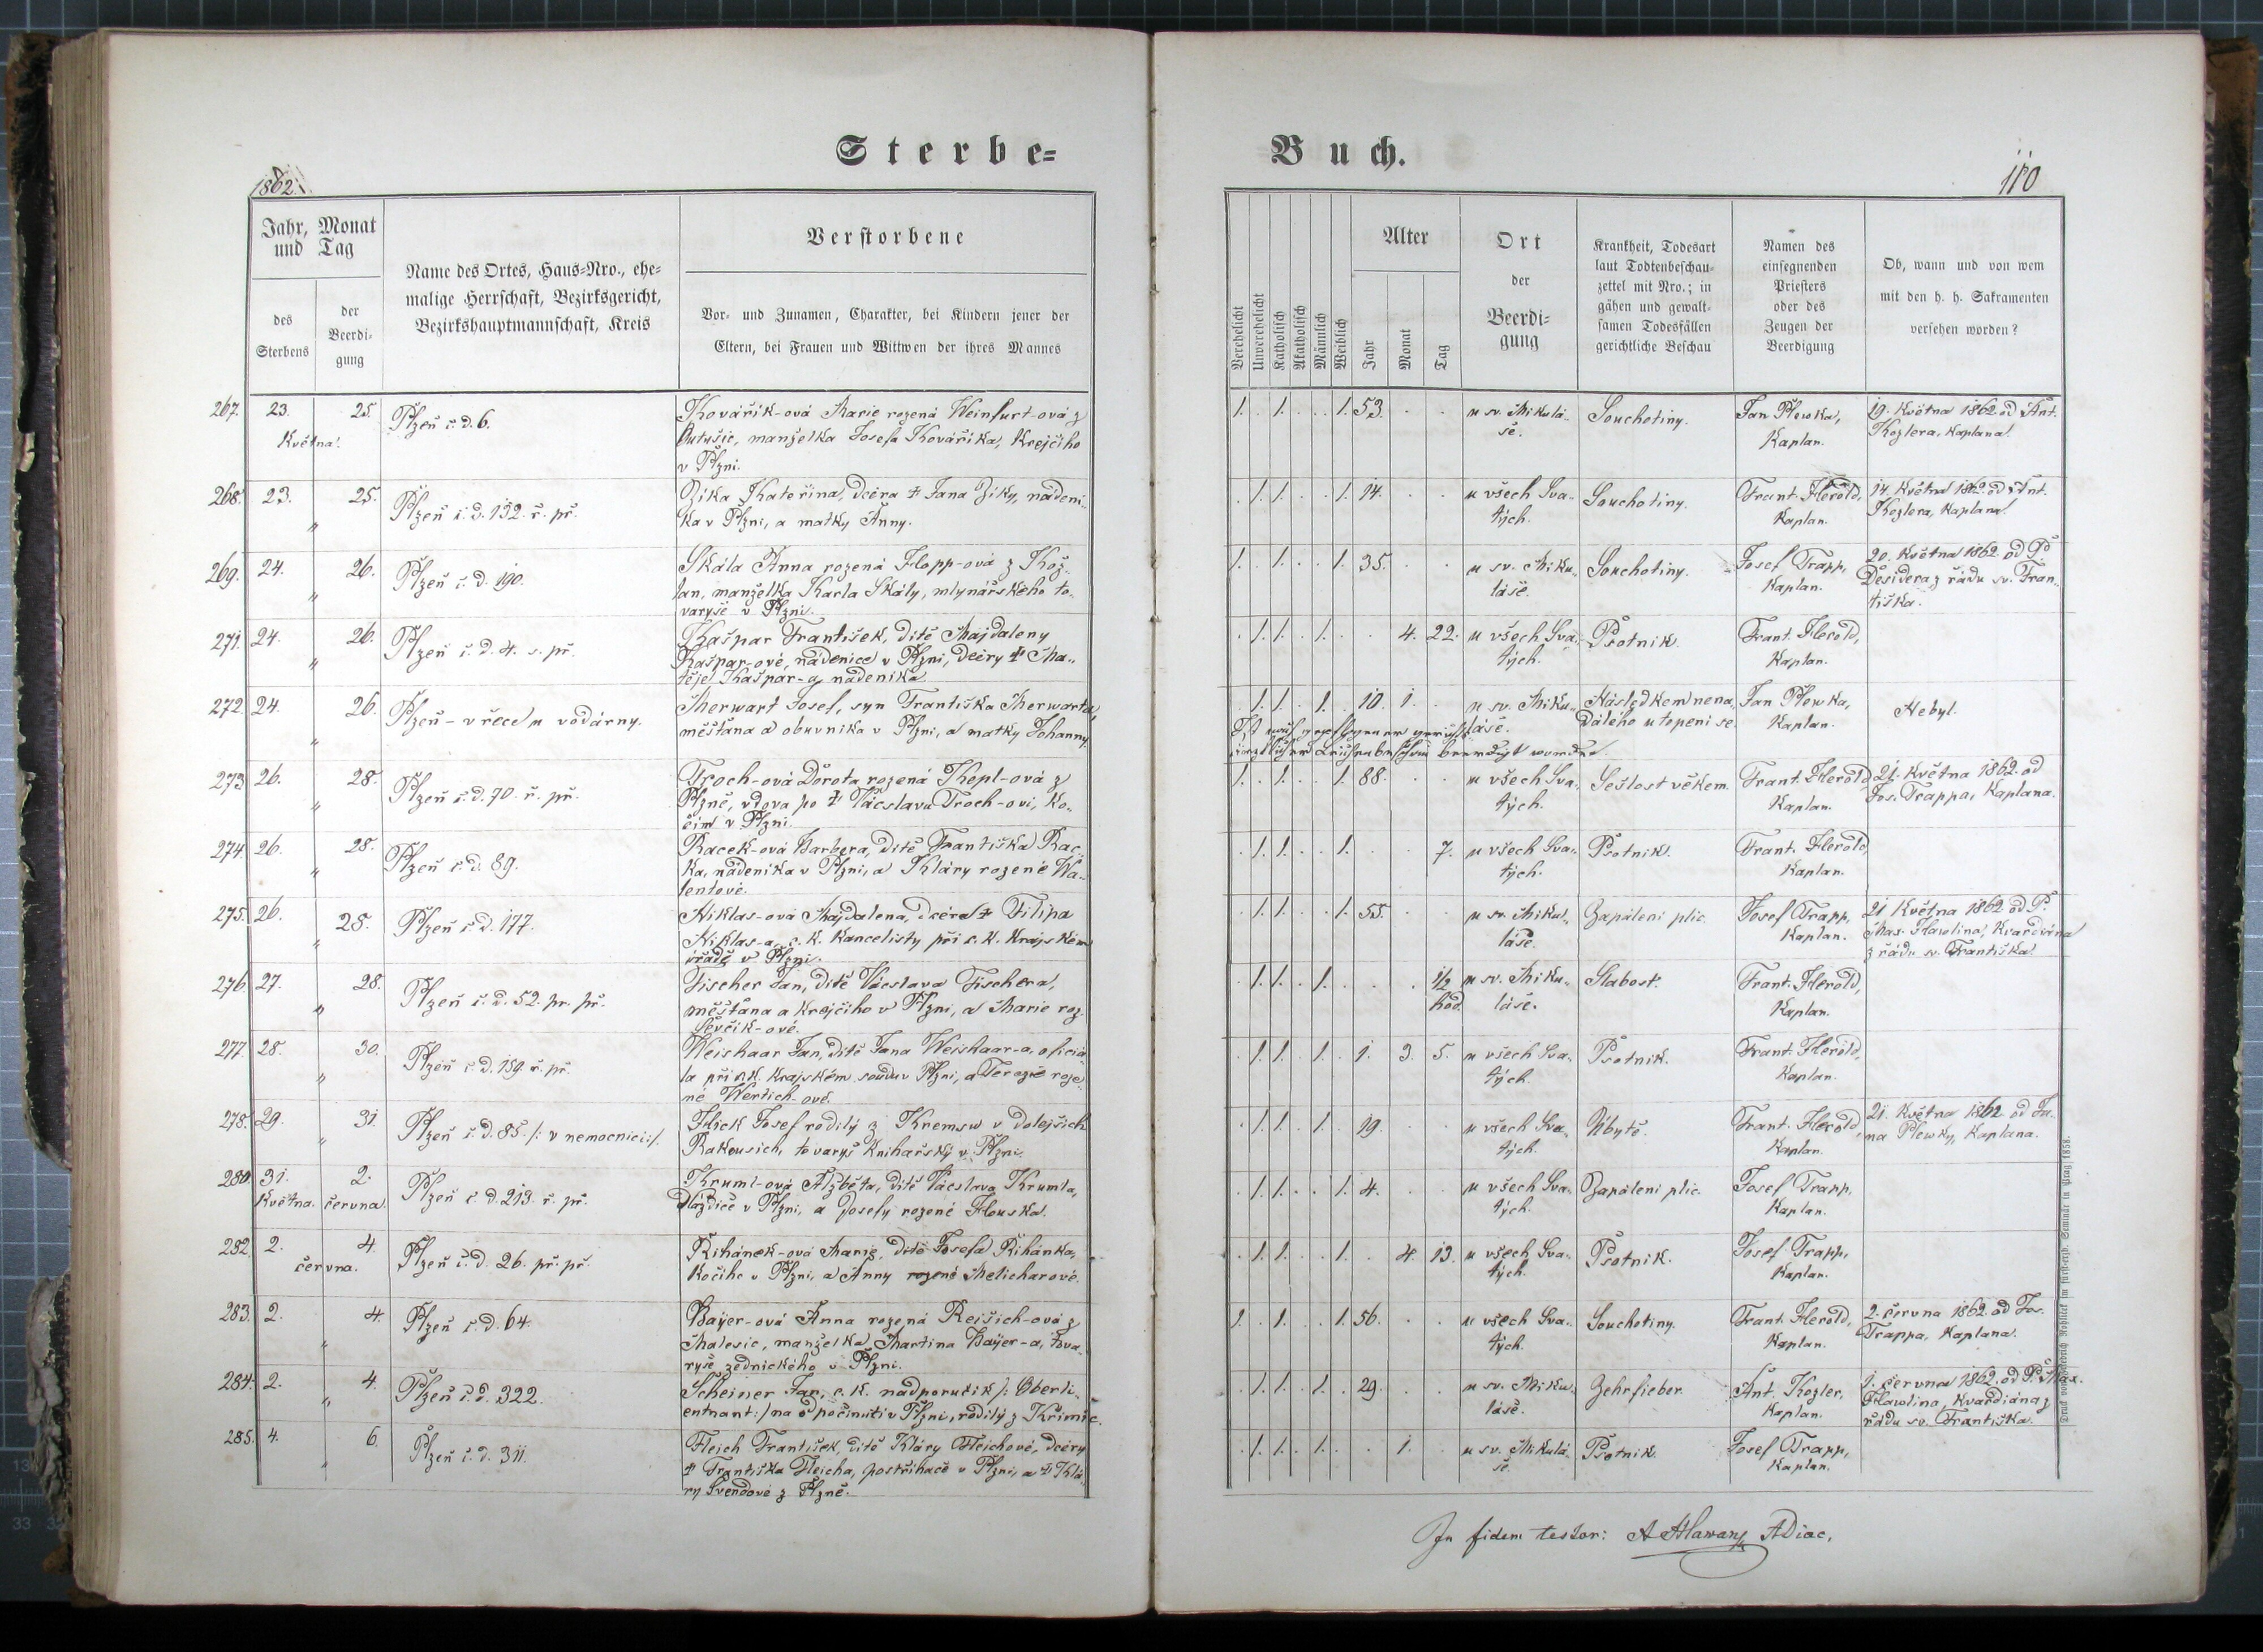 Sterbe-
Buch.
1862.
110
Jahr, Monat und Tag
des Sterbens
der Beerdi-
gung
Name des Ortes, Haus-Nro., ehe-
malige Herrschaft, Bezirksgericht,
Bezirkshauptmannschaft, Kreis
Verstorbene
Vor- und Zunamen, Charakter, bei Kindern jener der
Eltern, bei Frauen und Wittwen der ihres Mannes
Verehelicht
Unverehelicht
Katholisch
Akatholisch
Männlich
Weiblich
Alter
Jahr
Monat
Tag
Ort
der
Beerdi-
gung
Krankheit, Todesart
laut Todtenbeschau-
zettel mit Nro.; in
gähen und gewalt-
samen Todesfällen
gerichtliche Beschau
Namen des
einsegnenden
Priesters
oder des
Zeugen der
Beerdigung
Ob, wann und von wem
mit den h. h. Sakramenten
versehen worden?
267. 23. 25. Května.
Plzeň č. d. 6.
Kovářík-ová Marie rozená Weinfurt-ová z
Butušic, manželka Josefa Kováříka, Krejčího
v Plzni.
1. . 1. . . 1. 53. . .
u sv. Mikulá-
še.
Souchotiny.
Jan Plewka,
Kaplan.
19. Května 1862 od Ant.
Kozlera, Kaplana.
268. 23. 25. „
Plzeň č. d. 132. ř. př.
Zika Kateřina, dcera † Jana Ziky, nádení-
ka v Plzni, a matky Anny.
. 1. 1. . . 1. 14. . .
u všech Sva-
tých.
Souchotiny.
Frant. Herold,
Kaplan.
14. Května 1862 od Ant.
Kozlera, Kaplana.
269. 24. 26. „
Plzeň č. d. 190.
Skála Anna rozená Hopp-ová z Kož-
lan, manželka Karla Skály, mlynářského to-
varyše v Plzni.
1. . 1. . . 1. 35. . .
u sv. Miku-
láše.
Souchotiny.
Josef Trapp,
Kaplan.
20. Května 1862 od P.
Desidera z řádu sv. Fran-
tiška.
271. 24. 26. „
Plzeň č. d. 4. s. př.
Kašpar František, dítě Majdaleny
Kašpar-ové, nádenice v Plzni, dcery † Ma-
těje Kašpar-a, nádeníka.
. 1. 1. . 1. . . 4. 22.
u všech Sva-
tých.
Psotník.
Frant. Herold,
Kaplan.
272. 24. 26. „
Plzeň - v řece u vodárny.
Merwart Josef, syn Františka Merwarta,
měšťana a obuvníka v Plzni, a matky Johanny.
. 1. 1. . 1. . 10. 1. .
u sv. Miku-
láše.
Následkem nena-
dálého utopení se.
Jan Plewka,
Kaplan.
Nebyl.
beerdigt worden.
273. 26. 28. „
Plzeň č. d. 70. ř. př.
Troch-ová Dorota rozená Kepl-ová z
Plzně, vdova po † Vácslavu Troch-ovi, ko-
čím v Plzni.
1. . 1. . . 1. 88. . .
u všech Sva-
tých.
Sešlost věkem.
Frant. Herold,
Kaplan.
21. Května 1862. od
Jos. Trappa, Kaplana.
274. 26. 28. „
Plzeň č. d. 89.
Racek-ová Barbora, dítě Františka Rac-
ka, nádeníka v Plzni, a Kláry rozené Wa-
lentové.
. 1. 1. . . 1. . . 7.
u všech Sva-
tých.
Psotník.
Frant. Herold,
Kaplan.
275. 26. 28. „
Plzeň č. d. 177.
Niklas-ová Majdalena, dcera † Filipa
Niklas-a, c. k. kancelisty při c. k. krajském
úřadě v Plzni.
. 1. 1. . . 1. 55. . .
u sv. Miku-
láše.
Zapálení plic.
Josef Trapp,
Kaplan.
21 Května 1862 od P.
Max. Hawlina, Kvardiána
z řádu sv. Františka.
276. 27. 28. „
Plzeň č. d. 52. pr. př.
Fischer Jan, dítě Vácslava Fischera,
měšťana a krejčího v Plzni, a Marie roz.
Ševčík-ové.
. 1. 1. . 1. . . . 1/2 hod.
u sv. Miku-
láše.
Slabost.
Frant. Herold,
Kaplan.
277. 28. 30. „
Plzeň č. d. 159. ř. př.
Weishaar Jan, dítě Jana Weishaar-a, oficiá-
la při c. k. krajském soudu v Plzni, a Terezie roze-
né Wertich-ové.
. 1. 1. . 1. . 1. 3. 5.
u všech Sva-
tých.
Psotník.
Frant. Herold,
Kaplan.
278. 29. 31. „
Plzeň č. d. 85. /: v nemocnici :/.
Hick Josef rodilý z Kremsu v dolejších
Rakousích, tovaryš knihařský v Plzni.
. 1. 1. . 1. . 19. . .
u všech Sva-
tých.
Úbytě.
Frant. Herold,
Kaplan.
21. Května 1862 od Ja-
na Plewky, Kaplana.
280. 31. Května. 2. června.
Plzeň č. d. 213. ř. př.
Kruml-ová Alžběta, dítě Vácslava Krumla,
dlaždiče v Plzni, a Josefy rozené Houska.
. 1. 1. . . 1. 4. . .
u všech Sva-
tých.
Zapálení plic.
Josef Trapp,
Kaplan.
282. 2. 4. června.
Plzeň č. d. 26. pr. př.
Řihánek-ová Marie, dítě Josefa Řihánka,
kočího v Plzni, a Anny rozené Melicharové.
. 1. 1. . . 1. . 4. 13.
u všech Sva-
tých.
Psotník.
Josef Trapp,
Kaplan.
283. 2. 4. „
Plzeň č. d. 64.
Bayer-ová Anna rozená Rejšich-ová z
Malesic, manželka Martina Bayer-a, tova-
ryše zednického v Plzni.
1. . 1. . . 1. 56. . .
u všech Sva-
tých.
Souchotiny.
Frant. Herold,
Kaplan.
2. června 1862. od Jos.
Trappa, Kaplana.
284. 2. 4. „
Plzeň č. d. 322.
Scheiner Jan, c. k. nadporučík /: Oberli-
entnant :/ na odpočinutí v Plzni, rodilý z Křimic.
. 1. 1. . 1. . 29. . .
u sv. Miku-
láše.
Zehrfieber.
Ant. Kozler,
Kaplan.
1. června 1862. od P. Max.
Hawlina, Kvardiána z
řádu sv. Františka.
285. 4. 6. „
Plzeň č. d. 311.
Fleich František, dítě Kláry Fleichové, dcery
† Františka Fleicha, postřihače v Plzni, a † Klá-
ry Švendové z Plzně.
. 1. 1. . 1. . . 1. .
u sv. Mikulá-
še.
Psotník.
Josef Trapp,
Kaplan.
In fidem testor: A Hlawan ADiac.